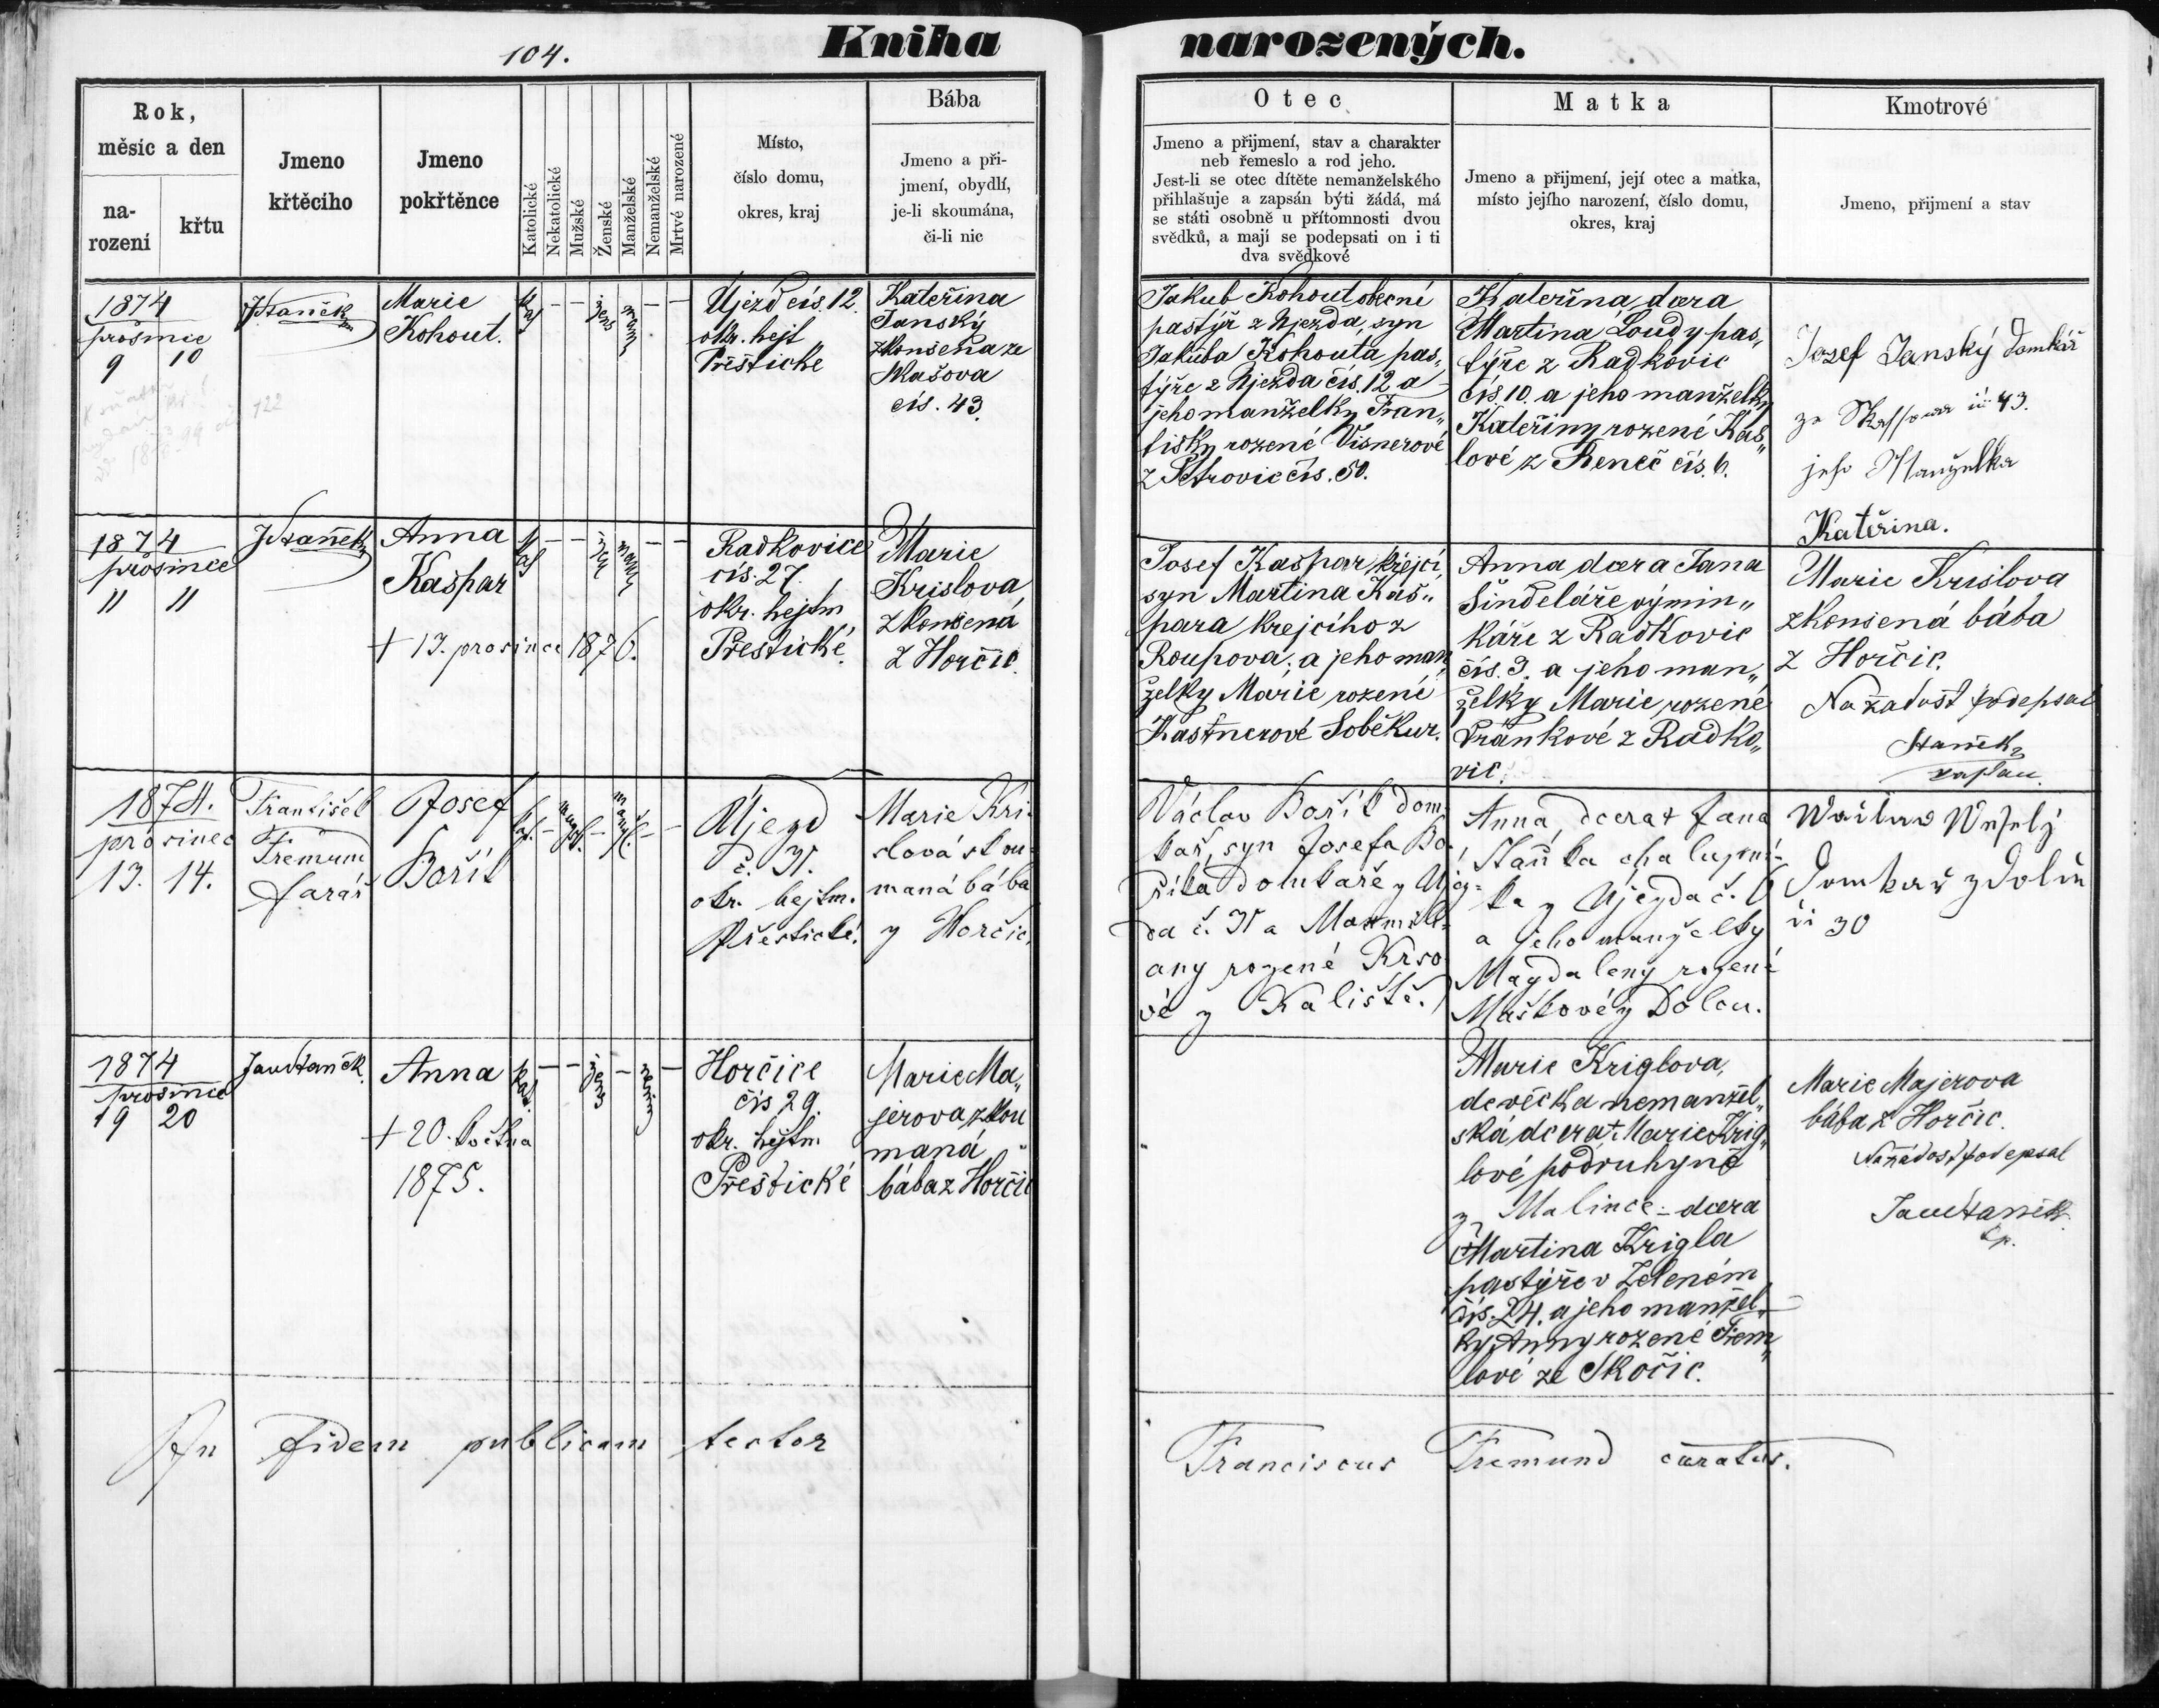 104.
Kniha narozených.
Rok,
měsíc a den
na-
rození
křtu
Jmeno
křtěcího
Jmeno
pokřtěnce
Katolické
Nekatolické
Mužské
Ženské
Manželské
Nemanželské
Mrtvé narozené
Místo,
číslo domu,
okres, kraj
Bába
Jmeno a pří-
jmení, obydlí,
je-li skoumána,
či-li nic
Otec
Jmeno a přijmení, stav a charakter
neb řemeslo a rod jeho.
Jest-li se otec dítěte nemanželského
přihlašuje a zapsán býti žádá, má
se státi osobně u přítomnosti dvou
svědků, a mají se podepsati on i ti
dva svědkové
Matka
Jmeno a přijmení, její otec a matka,
místo jejího narození, číslo domu,
okres, kraj
Kmotrové
Jmeno, přijmení a stav
1874
prosince
9 10
JStaněk
Marie
Kohout.
kat
— —
žens
manž
— —
Újezd čís. 12.
okr. hejt
Přeštické
Kateřina
Janský
zkoušená ze
Skašova
čís. 43.
Jakub Kohout obecní
pastýř z Újezda, syn
Jakuba Kohouta pas„
týře z Újezda čís. 12 a
jeho manželky Fran„
tišky rozené Visnerové
z Petrovic čís. 50.
Kateřina dcera
Martina Loudy pas„
týře z Radkovic
čís. 10. a jeho manželky
Kateřiny rozené Kás„
lové z Beneč čís. 6.
Josef Janský Domkář
ze Skassowa čís 43.
jeho Manželka
Kateřina.
1874
prosince
11 11
JStaněk
Anna
Kašpar
+ 13. prosince 1876.
kat
— —
žen
manž
— —
Radkovice
čís. 27.
okr. hejtm
Přeštické.
Marie
Krislova,
zkoušená
z Horčic.
Josef Kašpar, krejčí
syn Martina Kaš„
para krejčího z
Roupova, a jeho man
želky Marie rozené
Kastnerové Soběkur.
Anna dcera Jana
Šindeláře výmin„
káře z Radkovic
čís. 3. a jeho man„
želky Marie rozené
Fránkové z Radko„
vic.
Marie Krislova
zkoušená bába
z Horčic.
Na žádost podepsal
Staněk
kaplan.
1874.
prosinec
13. 14.
František
Fremund
farář
Josef
Bořík
kat.
—
mužsk.
—
manžel.
— —
Újezd
č. 31.
okr. hejtm.
Přeštické.
Marie Kri-
slová skou-
maná bába
z Horčic.
Václav Bořík dom-
kář, syn Josefa Bo-
říka domkáře z Újez-
da č. 31 a Maxmili-
any rozené Krso-
vé z Kaliště.
Anna, dcera + Jana
Staňka chalupní-
ka z Újezda č. 6
a jeho manželky
Magdaleny rozené
Maškové z Dolcu.
Waclaw Weselý
Domkař z Dolců
čí 30
1874
prosince
19 20
Jan Staněk.
Anna
+ 20. května
1875.
kat.
— —
žens
—
nemn
—
Horčice
čís 29.
okr. hejtm.
Přeštické
Marie Ma„
jerova, zkou
maná
bába z Horčic
Marie Kriglova,
děvečka nemanžel„
ská dcera + Marie Krig„
lové podruhyně
z Malince - dcera
+ Martina Krigla
pastýře v Zeleném
čís. 24. a jeho manžel
ky Anny rozené Frem„
lové ze Skočic.
Marie Majerova
bába z Horčic.
Na žádost podepsal
Jan Staněk
kp.
In fidem publicam testor
Franciscus Fremund curatus.